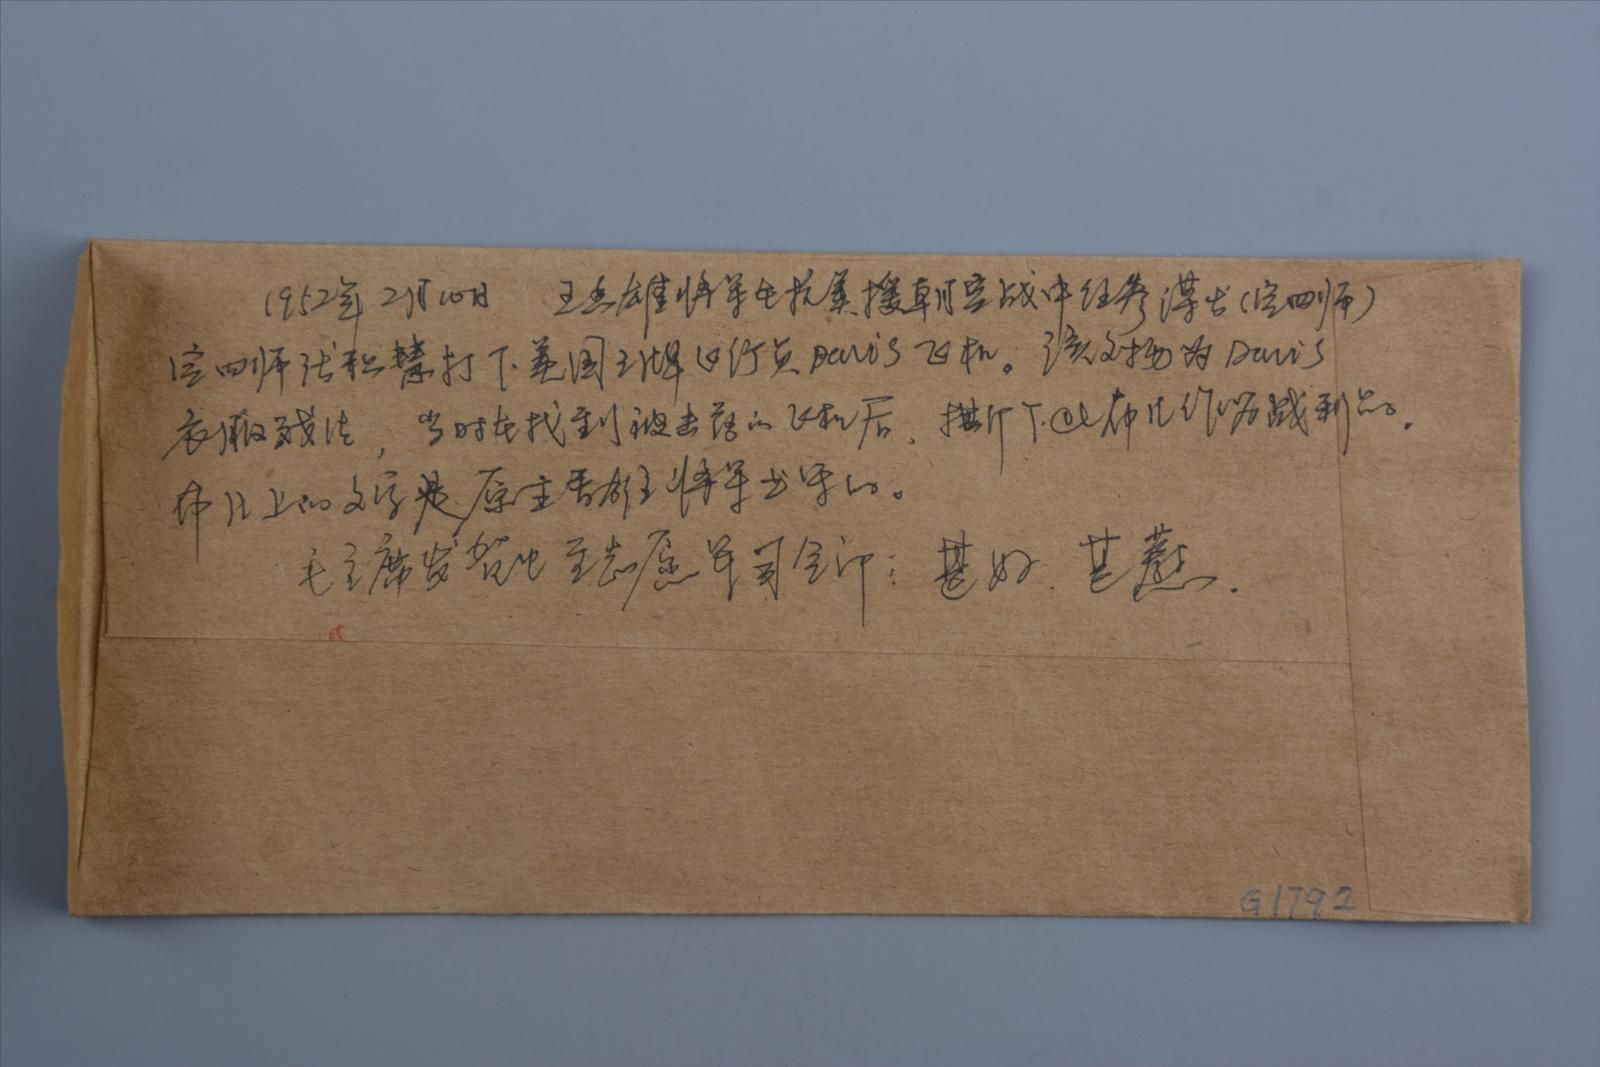 1952年2月10日 王 雄将军在抗美援朝空战中任参谋长(空四师)
空四师张积慧打下美国王牌飞行员Davis飞机。该文物为Davis
衣服残片,当时在找到被击落的飞机后,撕下此布片作为战利品。
布片上的文字是原主 将军书写的。
毛主席发贺电至志愿军司令部:甚好.甚慰.
G1792